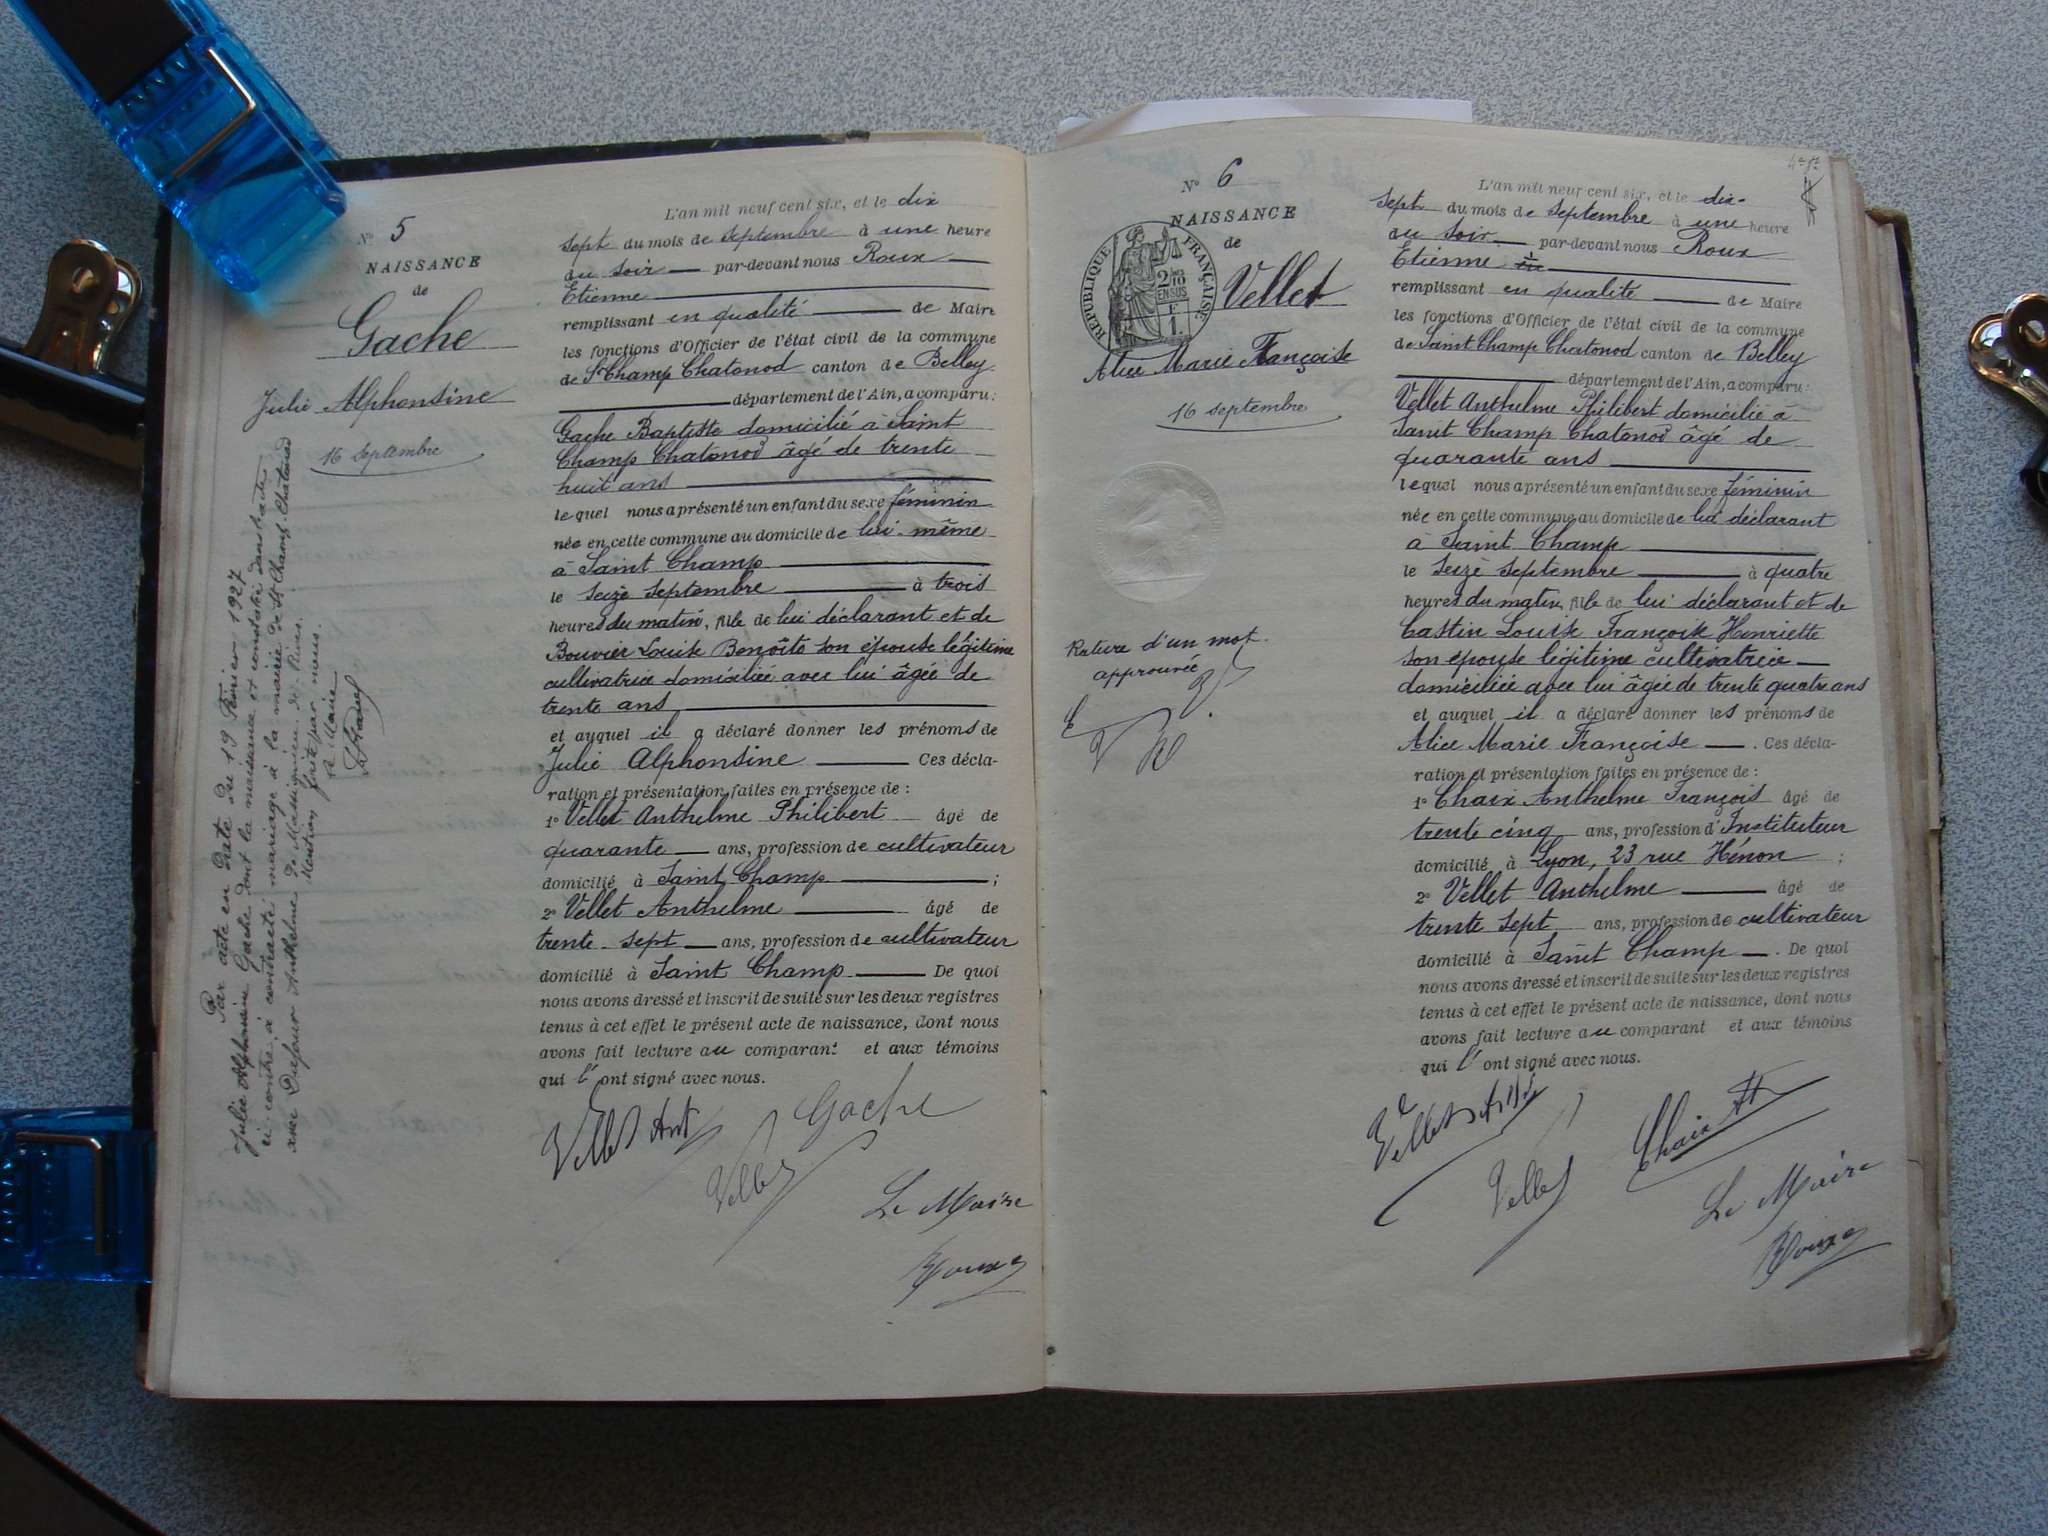 N° 5
NAISSANCE
de
Gache
Julie Alphonsine
16 septembre
Par acte en date du 19 Février 1927
Julie Alphonsine Gache dont la naissance est constatée dans l'acte
ci-contre, a contracté mariage à la mairie de St Champ-Chatonod
avec Dufour Anthelme de Massignieu-de-Rives.
Mention faite par nous.
Le Maire
L'an mil neuf cent six, et le dix
sept du mois de septembre à une heure
du soir par-devant nous Roux
Etienne
remplissant en qualité de Maire
les fonctions d'Officier de l'état civil de la commune
de St Champ Chatonod canton de Belley
département de l'Ain, a comparu :
Gache Baptiste domicilié à Saint
Champ Chatonod âgé de trente
huit ans
lequel nous a présenté un enfant du sexe féminin
née en cette commune au domicile de lui-même
à Saint Champ
le seize septembre à trois
heures du matin, fille de lui déclarant et de
Bouvier Louise Benoîte son épouse légitime
cultivatrice domiciliée avec lui âgée de
trente ans
et auquel il a déclaré donner les prénoms de
Julie Alphonsine Ces décla-
ration et présentation faites en présence de :
1° Vellet Anthelme Philibert âgé de
quarante ans, profession de cultivateur
domicilié à Saint Champ ;
2° Vellet Anthelme âgé de
trente-sept ans, profession de cultivateur
domicilié à Saint Champ De quoi
nous avons dressé et inscrit de suite sur les deux registres
tenus à cet effet le présent acte de naissance, dont nous
avons fait lecture au comparant et aux témoins
qui l'ont signé avec nous.
Vellet Ant
Gache
Vellet
Le Maire
Roux
N° 6
NAISSANCE
de
RÉPUBLIQUE FRANÇAISE
2/10
EN SUS
E
1.
Vellet
Alice Marie Françoise
16 septembre
Rature d'un mot
approuvée
L'an mil neuf cent six, et le dix-
sept du mois de septembre à une heure
du soir par-devant nous Roux
Etienne
remplissant en qualité de Maire
les fonctions d'Officier de l'état civil de la commune
de Saint Champ Chatonod canton de Belley
département de l'Ain, a comparu :
Vellet Anthelme Philibert domicilié à
Saint Champ Chatonod âgé de
quarante ans
lequel nous a présenté un enfant du sexe féminin
née en cette commune au domicile de lui déclarant
à Saint Champ
le seize septembre à quatre
heures du matin, fille de lui déclarant et de
Castin Louise Françoise Henriette
son épouse légitime cultivatrice
domiciliée avec lui âgée de trente quatre ans
et auquel il a déclaré donner les prénoms de
Alice Marie Françoise . Ces décla-
ration et présentation faites en présence de :
1° Chaix Anthelme François âgé de
trente cinq ans, profession d'Instituteur
domicilié à Lyon, 23 rue Hénon ;
2° Vellet Anthelme âgé de
trente sept ans, profession de cultivateur
domicilié à Saint Champ . De quoi
nous avons dressé et inscrit de suite sur les deux registres
tenus à cet effet le présent acte de naissance, dont nous
avons fait lecture au comparant et aux témoins
qui l'ont signé avec nous.
Vellet
Vellet
Chaix
Le Maire
Roux